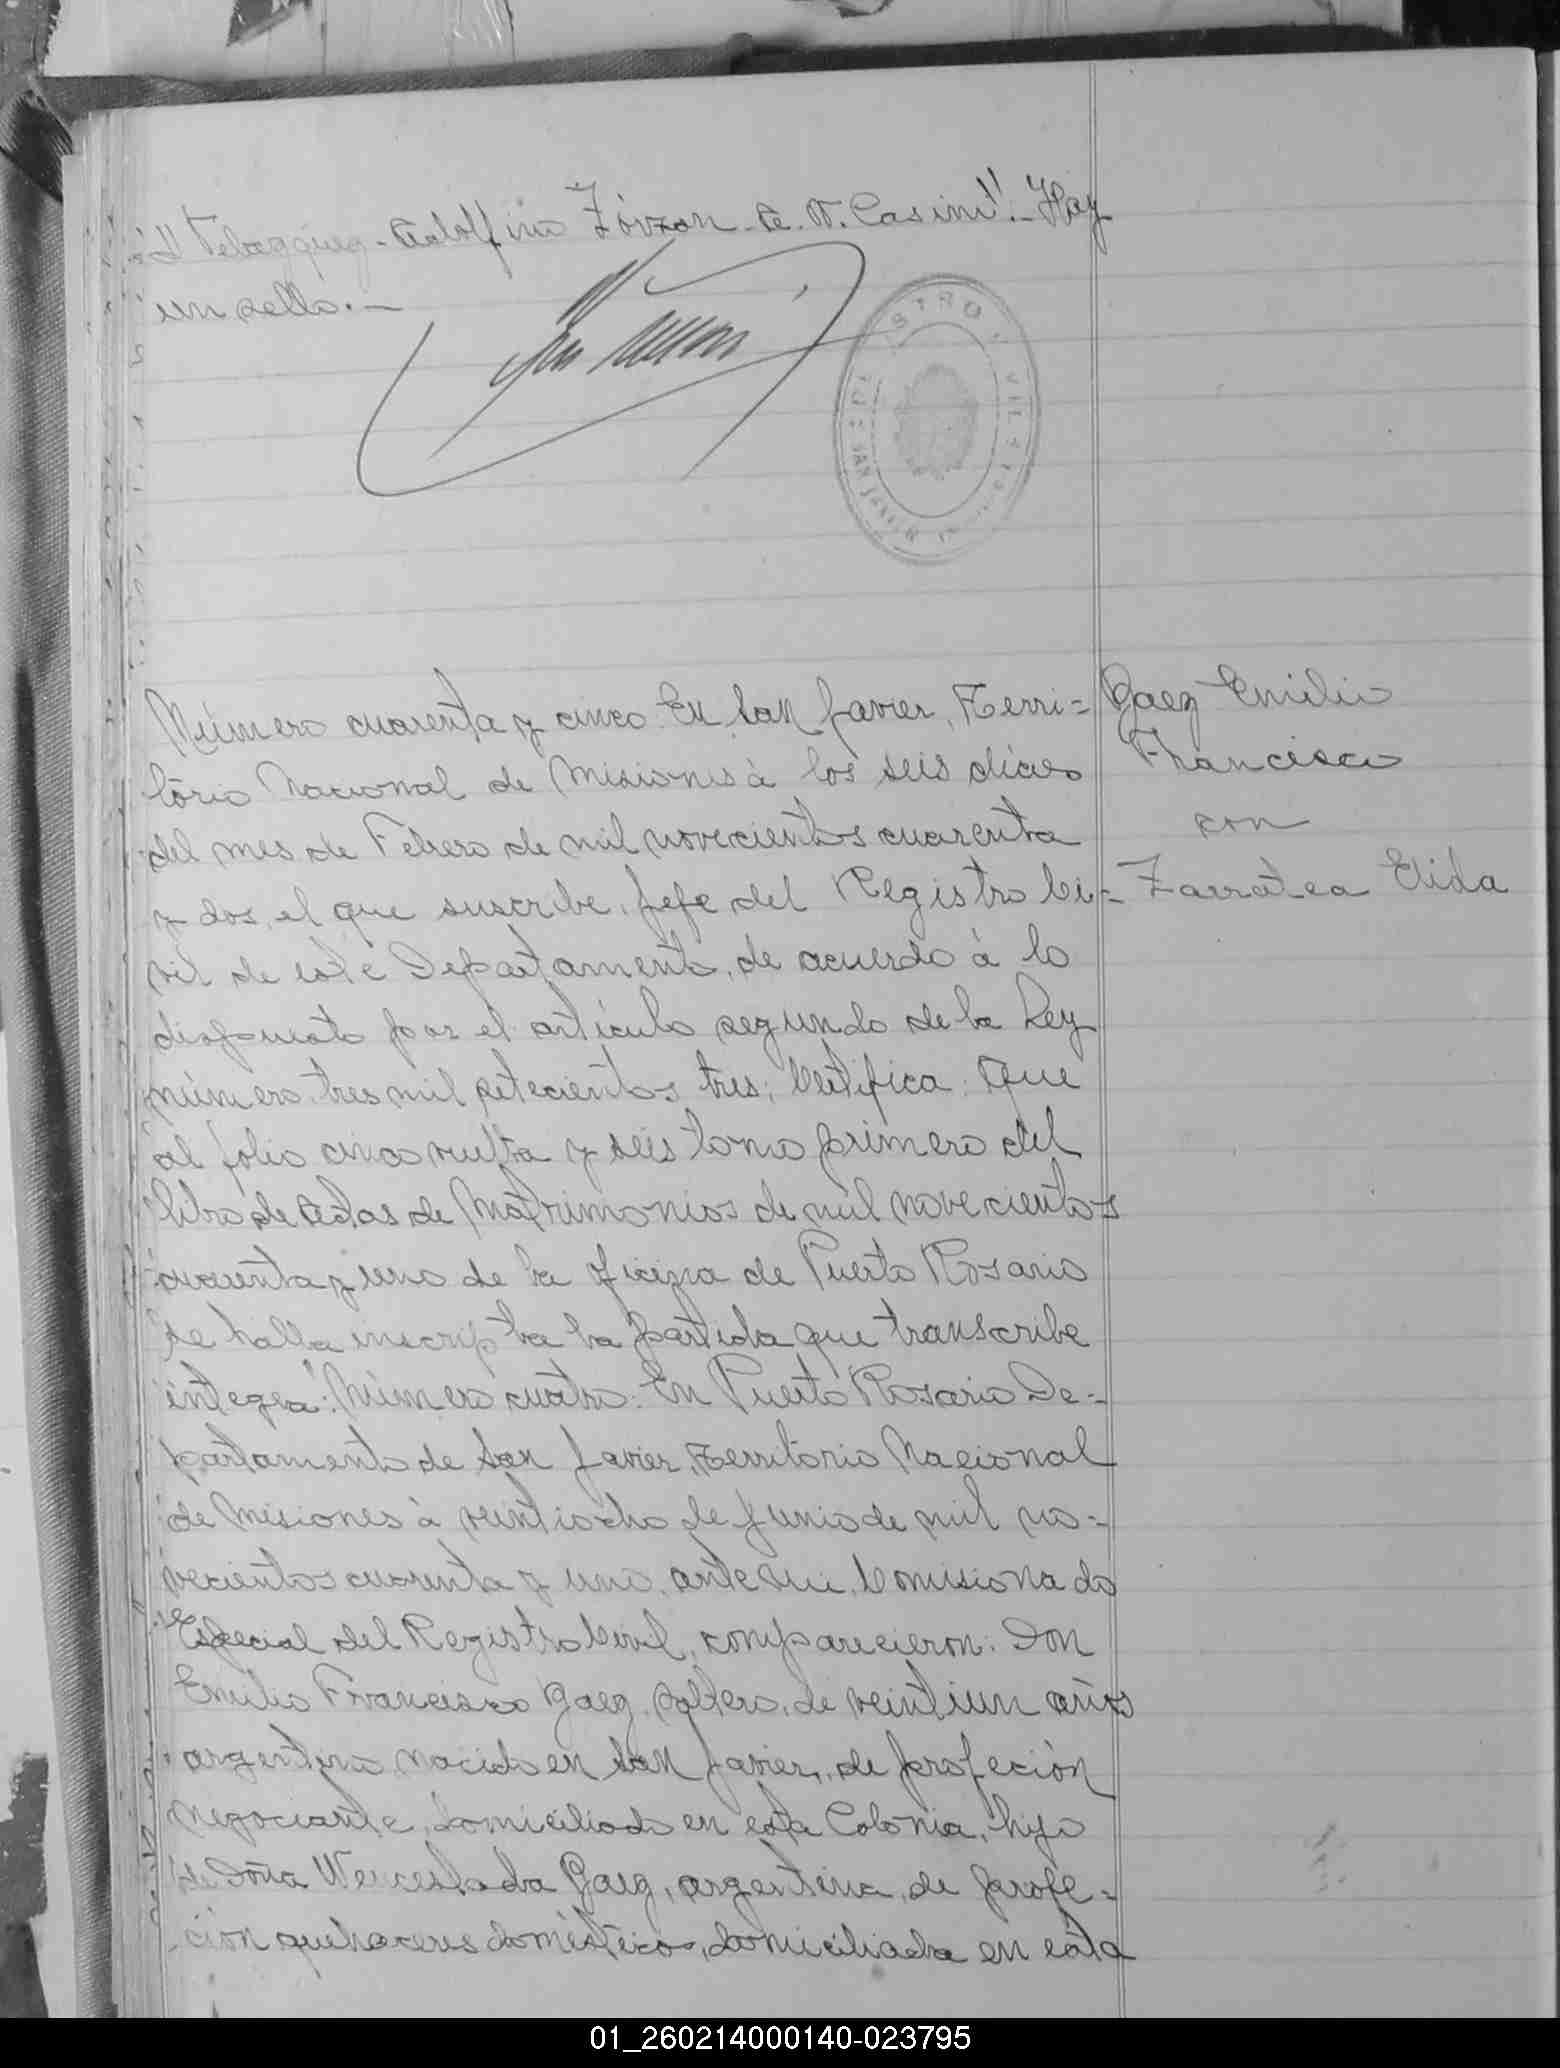 Velazquez - Adolfina Fórzan de V. Casini". - Hay
un sello. -
Número cuarenta y cinco: En San Javier, Terri=
torio Nacional de Misiones à los seis dias
del mes de Febrero de mil novecientos cuarenta
y dos, el que suscribe, Jefe del Registro Ci-
vil de este Departamento, de acuerdo à lo
dispuesto por el artículo segundo de la Ley
número tres mil setecientos tres; Certifica: Que
al folio cinco vuelta y seis tomo primero del
libro de Actas de Matrimonios de mil novecientos
cuarenta y uno de la oficina de Puerto Rosario
se halla inscripta la partida que transcribe
integra: "Número cuatro: En Puerto Rosario De-
partamento de San Javier, Territorio Nacional
de Misiones à veintiocho de Junio de mil no-
vecientos cuarenta y uno, ante mi, Comisionado
Especial del Registro Civil, comparecieron: Don
Emilio Francisco Gaez, soltero, de veintiun años
argentino, nacido en San Javier, de profeción
negociante, domiciliado en esta Colonia, hijo
de Doña Wenceslada Gaez, argentina, de profe-
ción quehaceres domésticos, domiciliada en esta
Gaez Emilio
Francisco
con
Zarratea Elida
SAN JAVIER
01_260214000140-023795